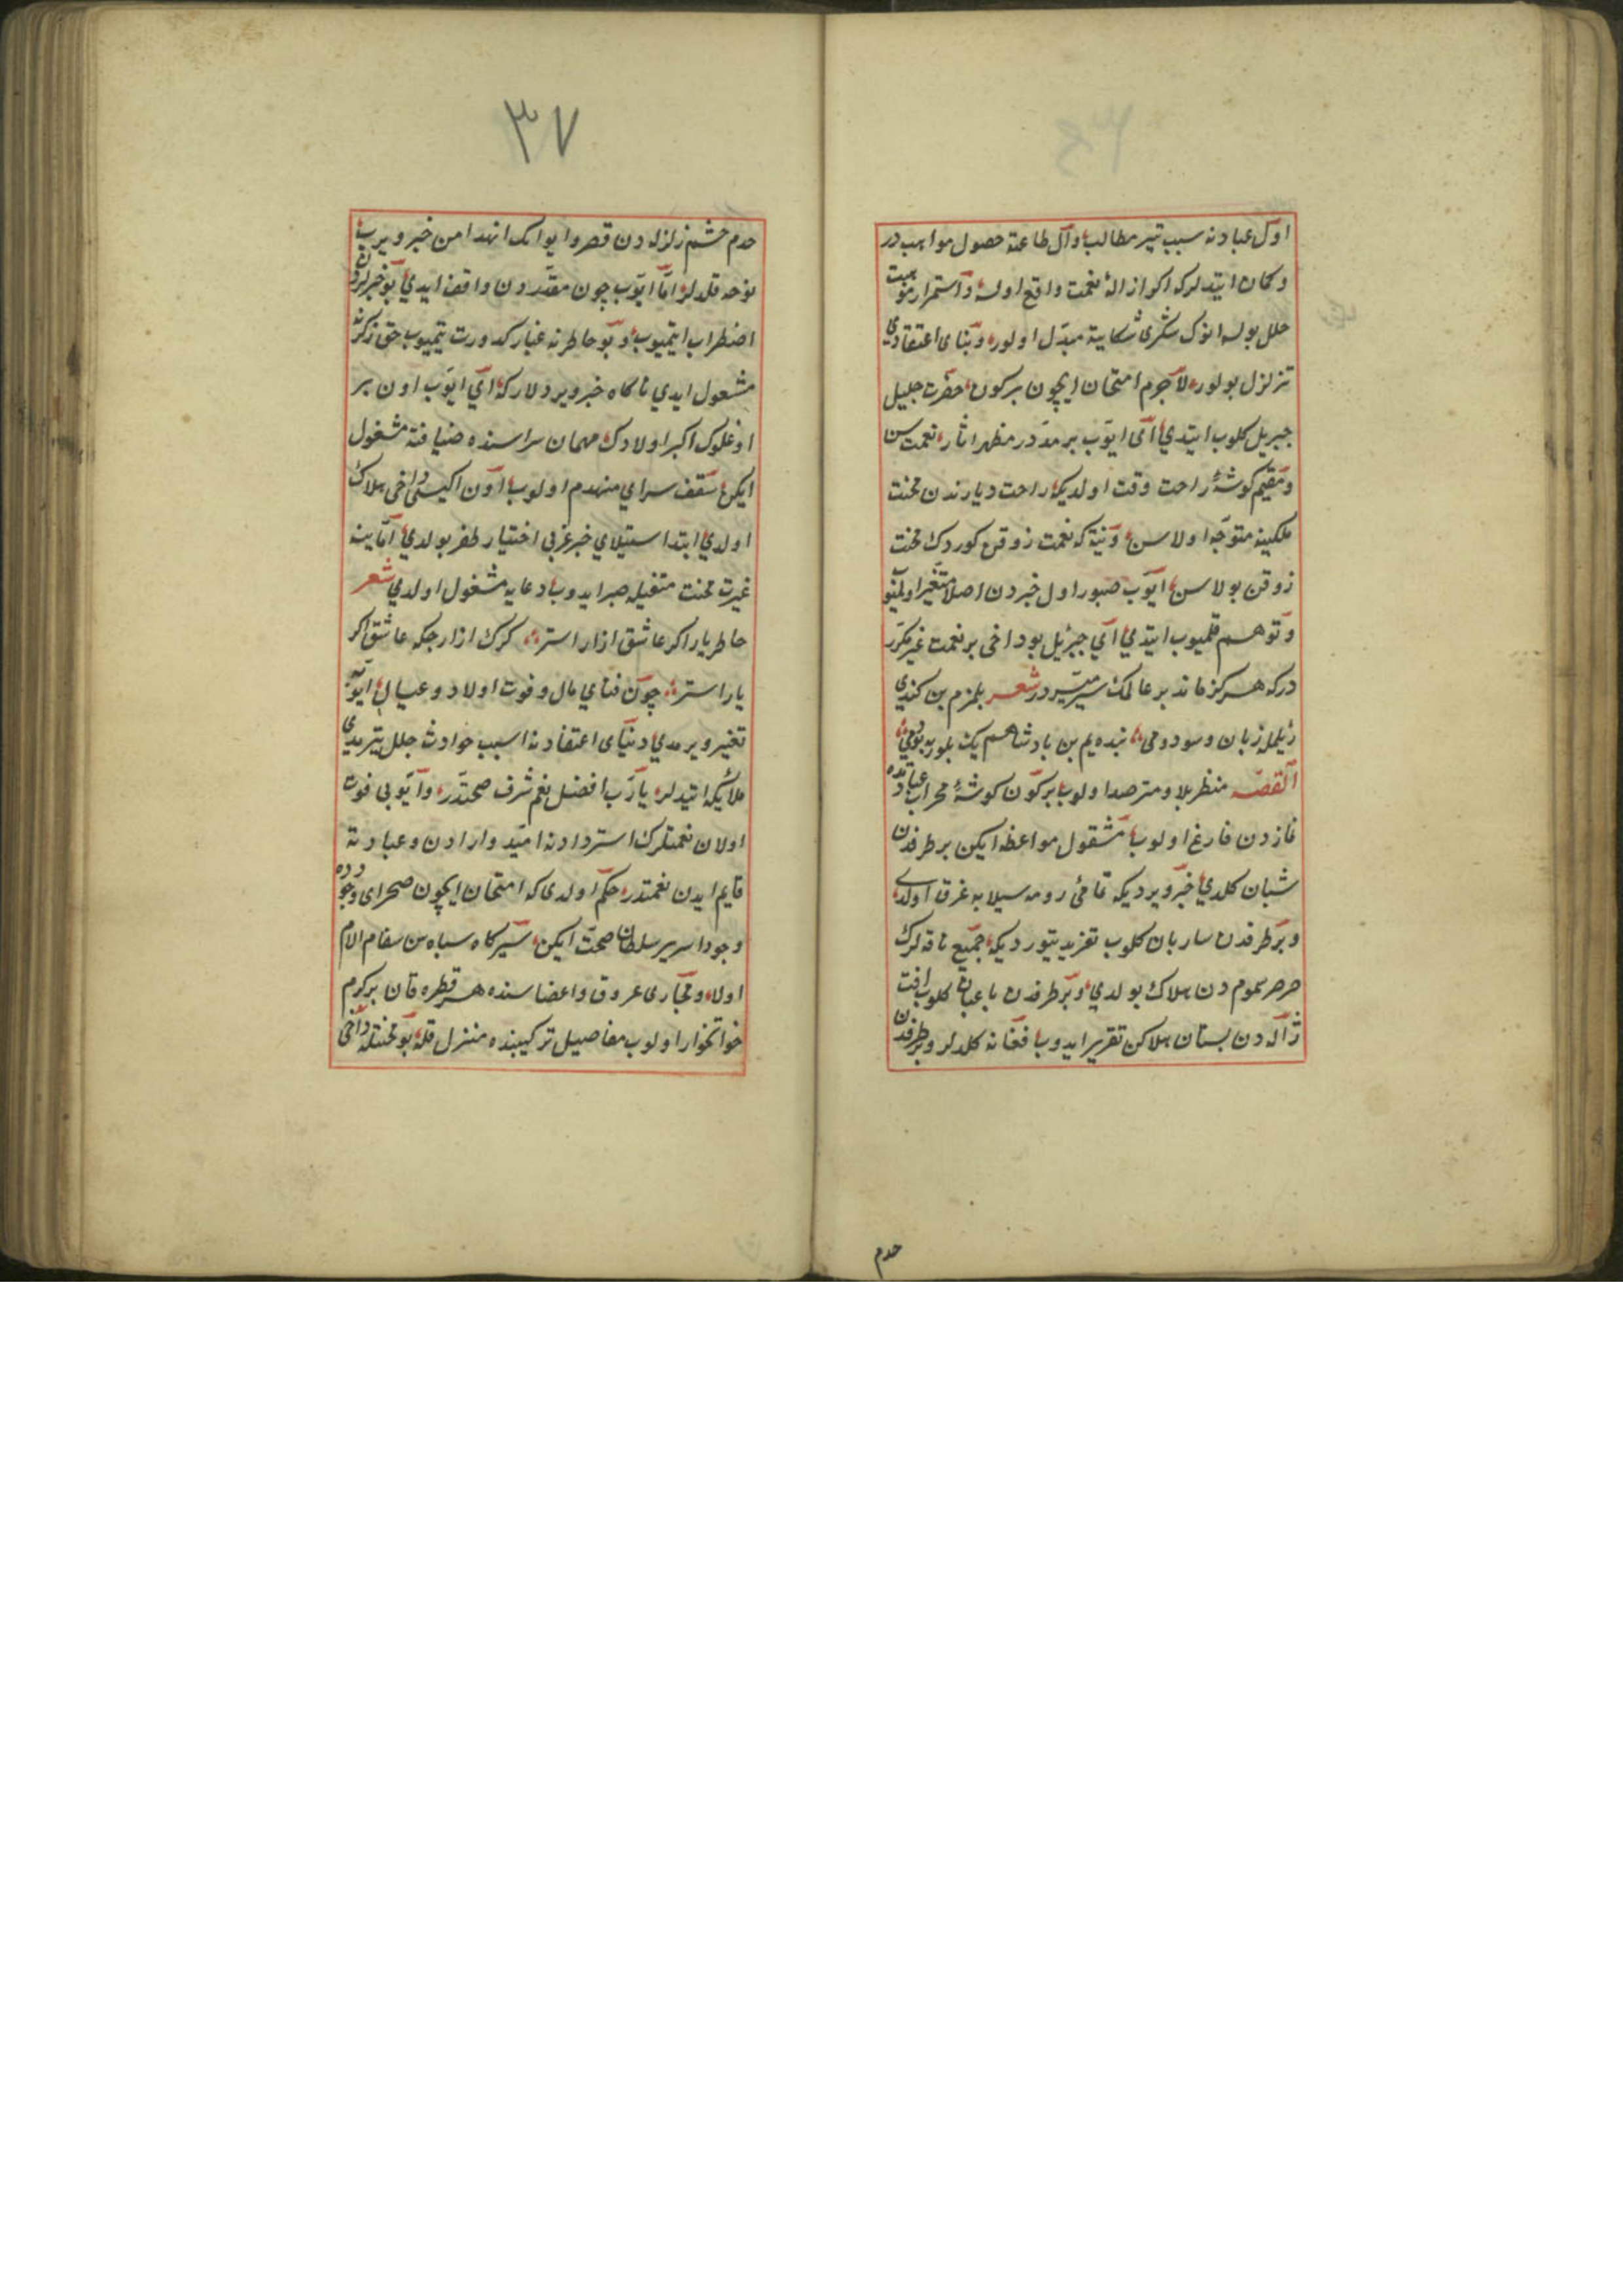 اول عبادته سبب تیر مطالب وآل طاعته حصول مواهبدر
وکمان ایتدیلرکه اکر ازالهٔ نعمت واقع اولسه واستمرار موهبت
خلل بولسه انوک شکری شکایته مبدل اولور وبنای اعتقادی
تزلزل بولور لاجرم امتحان ایچون برکون حضرت جلیل
جبریل کلوب ایتدی ای ایوب بر مدتدر مظهر اثار نعمت سن
ومقیم کوشهٔ راحت وقت اولدیکه راحت دیارندن محنت
ملکینه متوجه اولاسن ونیته که نعمت ذوقن کوردک محنت
ذوقن بولاسن ایوب صبور اول خبردن اصلا متغیر اولمیوب
وتوهم قلمیوب ایتدی ای جبرئیل بو داخی بر نعمت غیر مکرر
درکه هرکز ماند بر عالمک سیر میسردر شعر بلمزم بن کندی
زیلمله زبان وسودومی بنده یم بن بادشاهم یک بلور بو یوغی
القصه منتظر بلا ومترصد اولوب برکون کوشهٔ محراب عبادتده
نمازدن فارغ اولوب مشغول مواعظه ایکن بر طرفدن
شبان کلدی خبر ویردیکه قامی رومه سیلابه غرق اولدی
وبر طرفدن ساربان کلوب تقریر یتوردیکه جمیع ناقه لرک
صرصر سمومدن هلاک بولدی وبر طرفدن باغبان کلوب افت
ژاله دن بستان هلاکن تقریر ایدوب افغانه کلدیلر وبر طرفدن
حدم
٣٧
حدم حشم زلزله دن قصر وایوانک انهدامن خبر ویرب
نوحه قلدیلر اما ایوب چون مقدردن واقف ایدی بو خبرلردن
اضطراب ایتمیوب وبو خاطرنه غبار کدورت یتمیوب حق ذکرنه
مشغول ایدی ناکاه خبر ویردیلارکه ای ایوب اون بر
اوغلوک اکبر اولادک مهمان سراسنده ضیافته مشغول
ایکن سقف سرای منهدم اولوب اون ایکیسی داخی هلاک
اولدی ابتدا استیلای خبر غربی اختیار ظفر بولدی اما ینه
غیرت محنت متغیله صبر ایدوب دعایه مشغول اولدی شعر
خاطر یار اکر عاشق ازار استر کرک ازار جکه عاشق اکر
یار استر چون فنای مال وفوت اولاد وعیال ایوبه
تغیر ویرمدی وبنای اعتقادنه اسیب حوادث خلل یترمدی
ملائیکه ایتدیلر یارب افضل نعم شرف صحتدر وایوبی فوت
اولان نعمتلرک استردادنه امیدوار ادن وعبادته
قایم ایدن نعمتدر حکم اولدی که امتحان ایچون صحرای وجودده
وجودا سریر سلطان صحت ایکن سیرکاه سباه سقام الام
اولا ومجاری عروق واعضاسنده هر قطره قان بر کرم
خوانخوار اولوب مفاصیل ترکیبنده منزل قله بو محنتله داخی